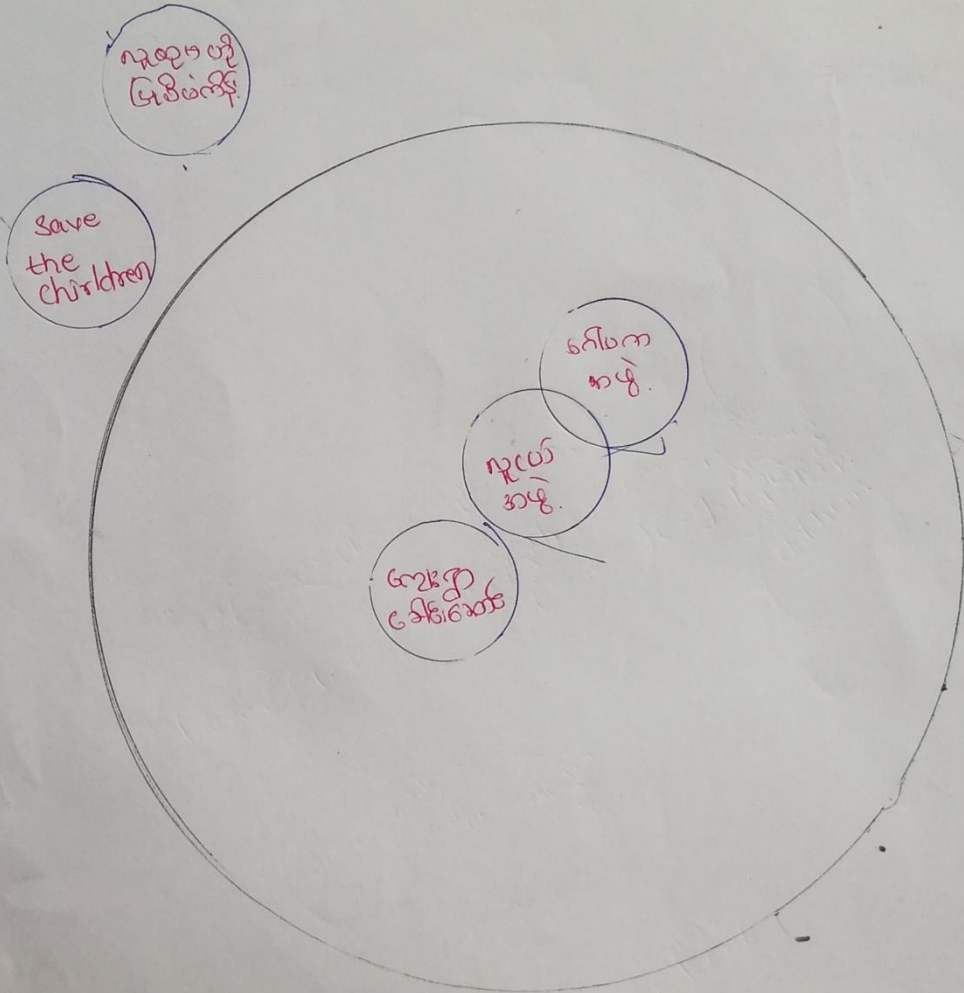 လူထုဗဟို
ပြုစီမံကိန်း
Save
the
Chirldren
ဂေါပက
အဖွဲ့.
လူငယ်
အဖွဲ့.
ကျေးရွာ
ခေါင်းဆောင်